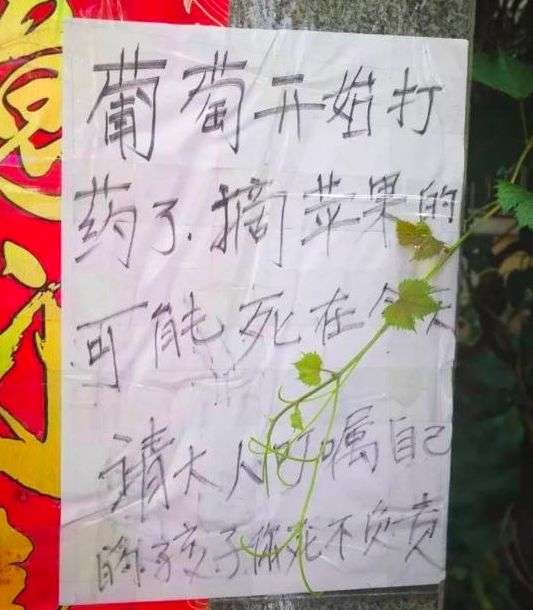 葡萄开始打
药了.摘苹果的
可能死在今天
请大人叮嘱自己
的孩子.死不负责